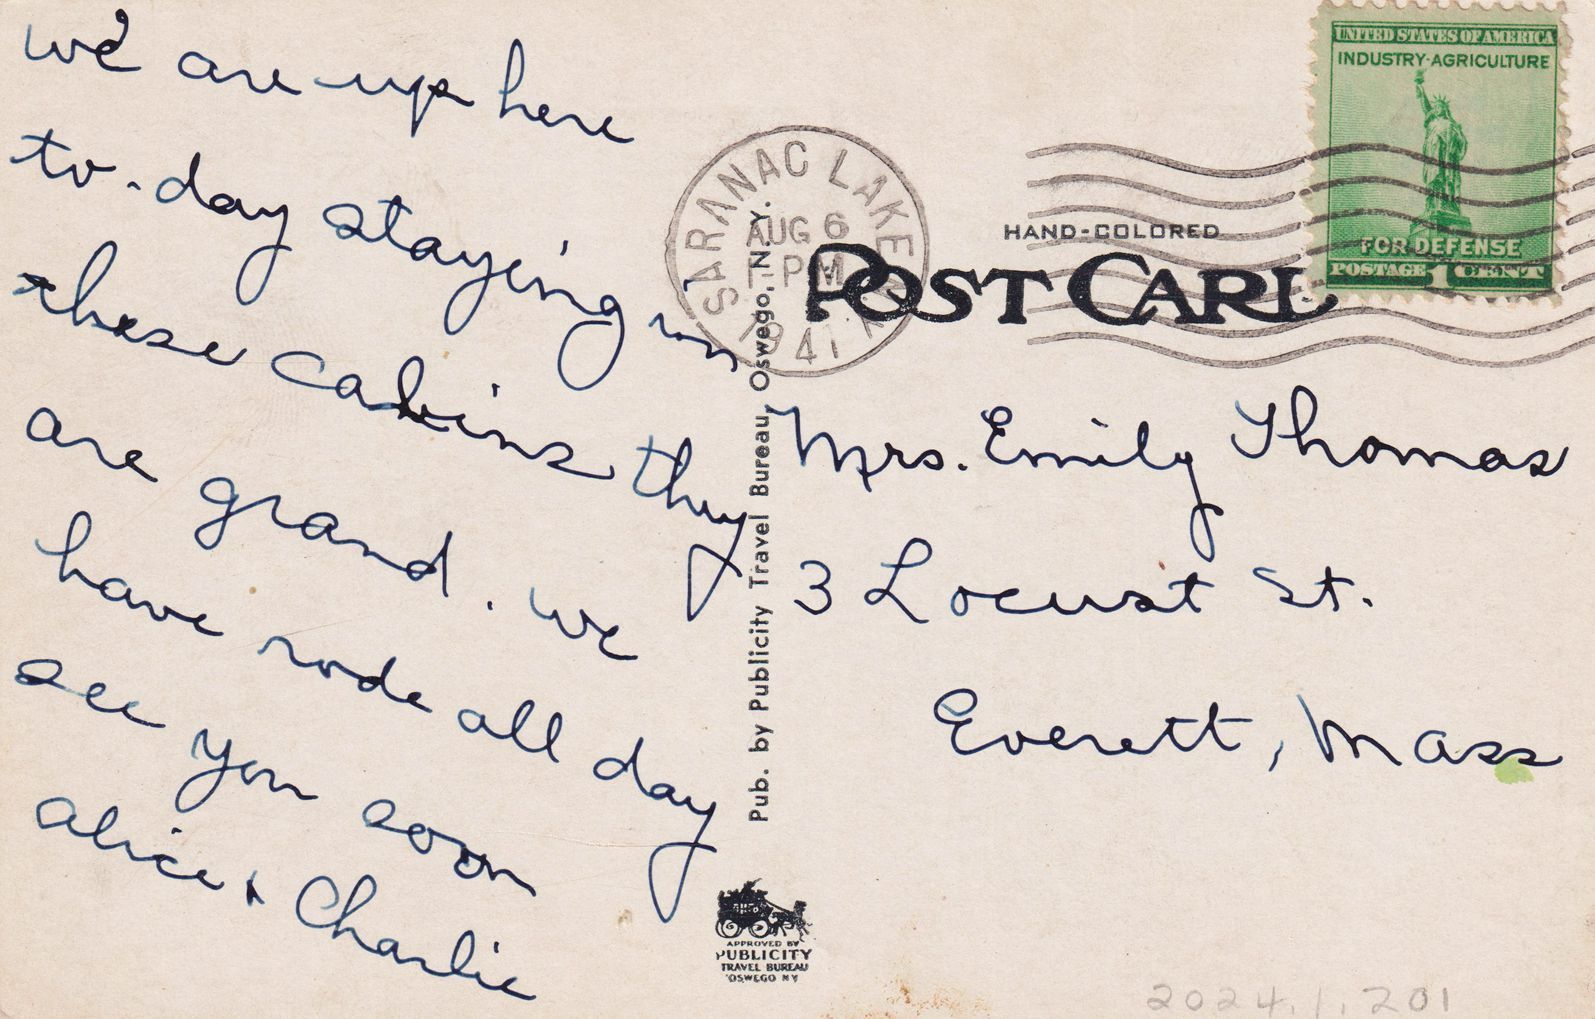 we are up here
to-day staying in
these cabins they
are grand. we
have rode all day
see you soon
alice & Charlie
UNITED STATES OF AMERICA
INDUSTRY-AGRICULTURE
FOR DEFENSE
POSTAGE 1 CENT
SARANAC LAKE
AUG 6
PM
1941
HAND-COLORED
POST CARD
Mrs. Emily Thomas
3 Locust St.
Everett, Mass
Pub. by Publicity Travel Bureau, Oswego, N. Y.
APPROVED BY
PUBLICITY
TRAVEL BUREAU
OSWEGO NY
2024.1.201